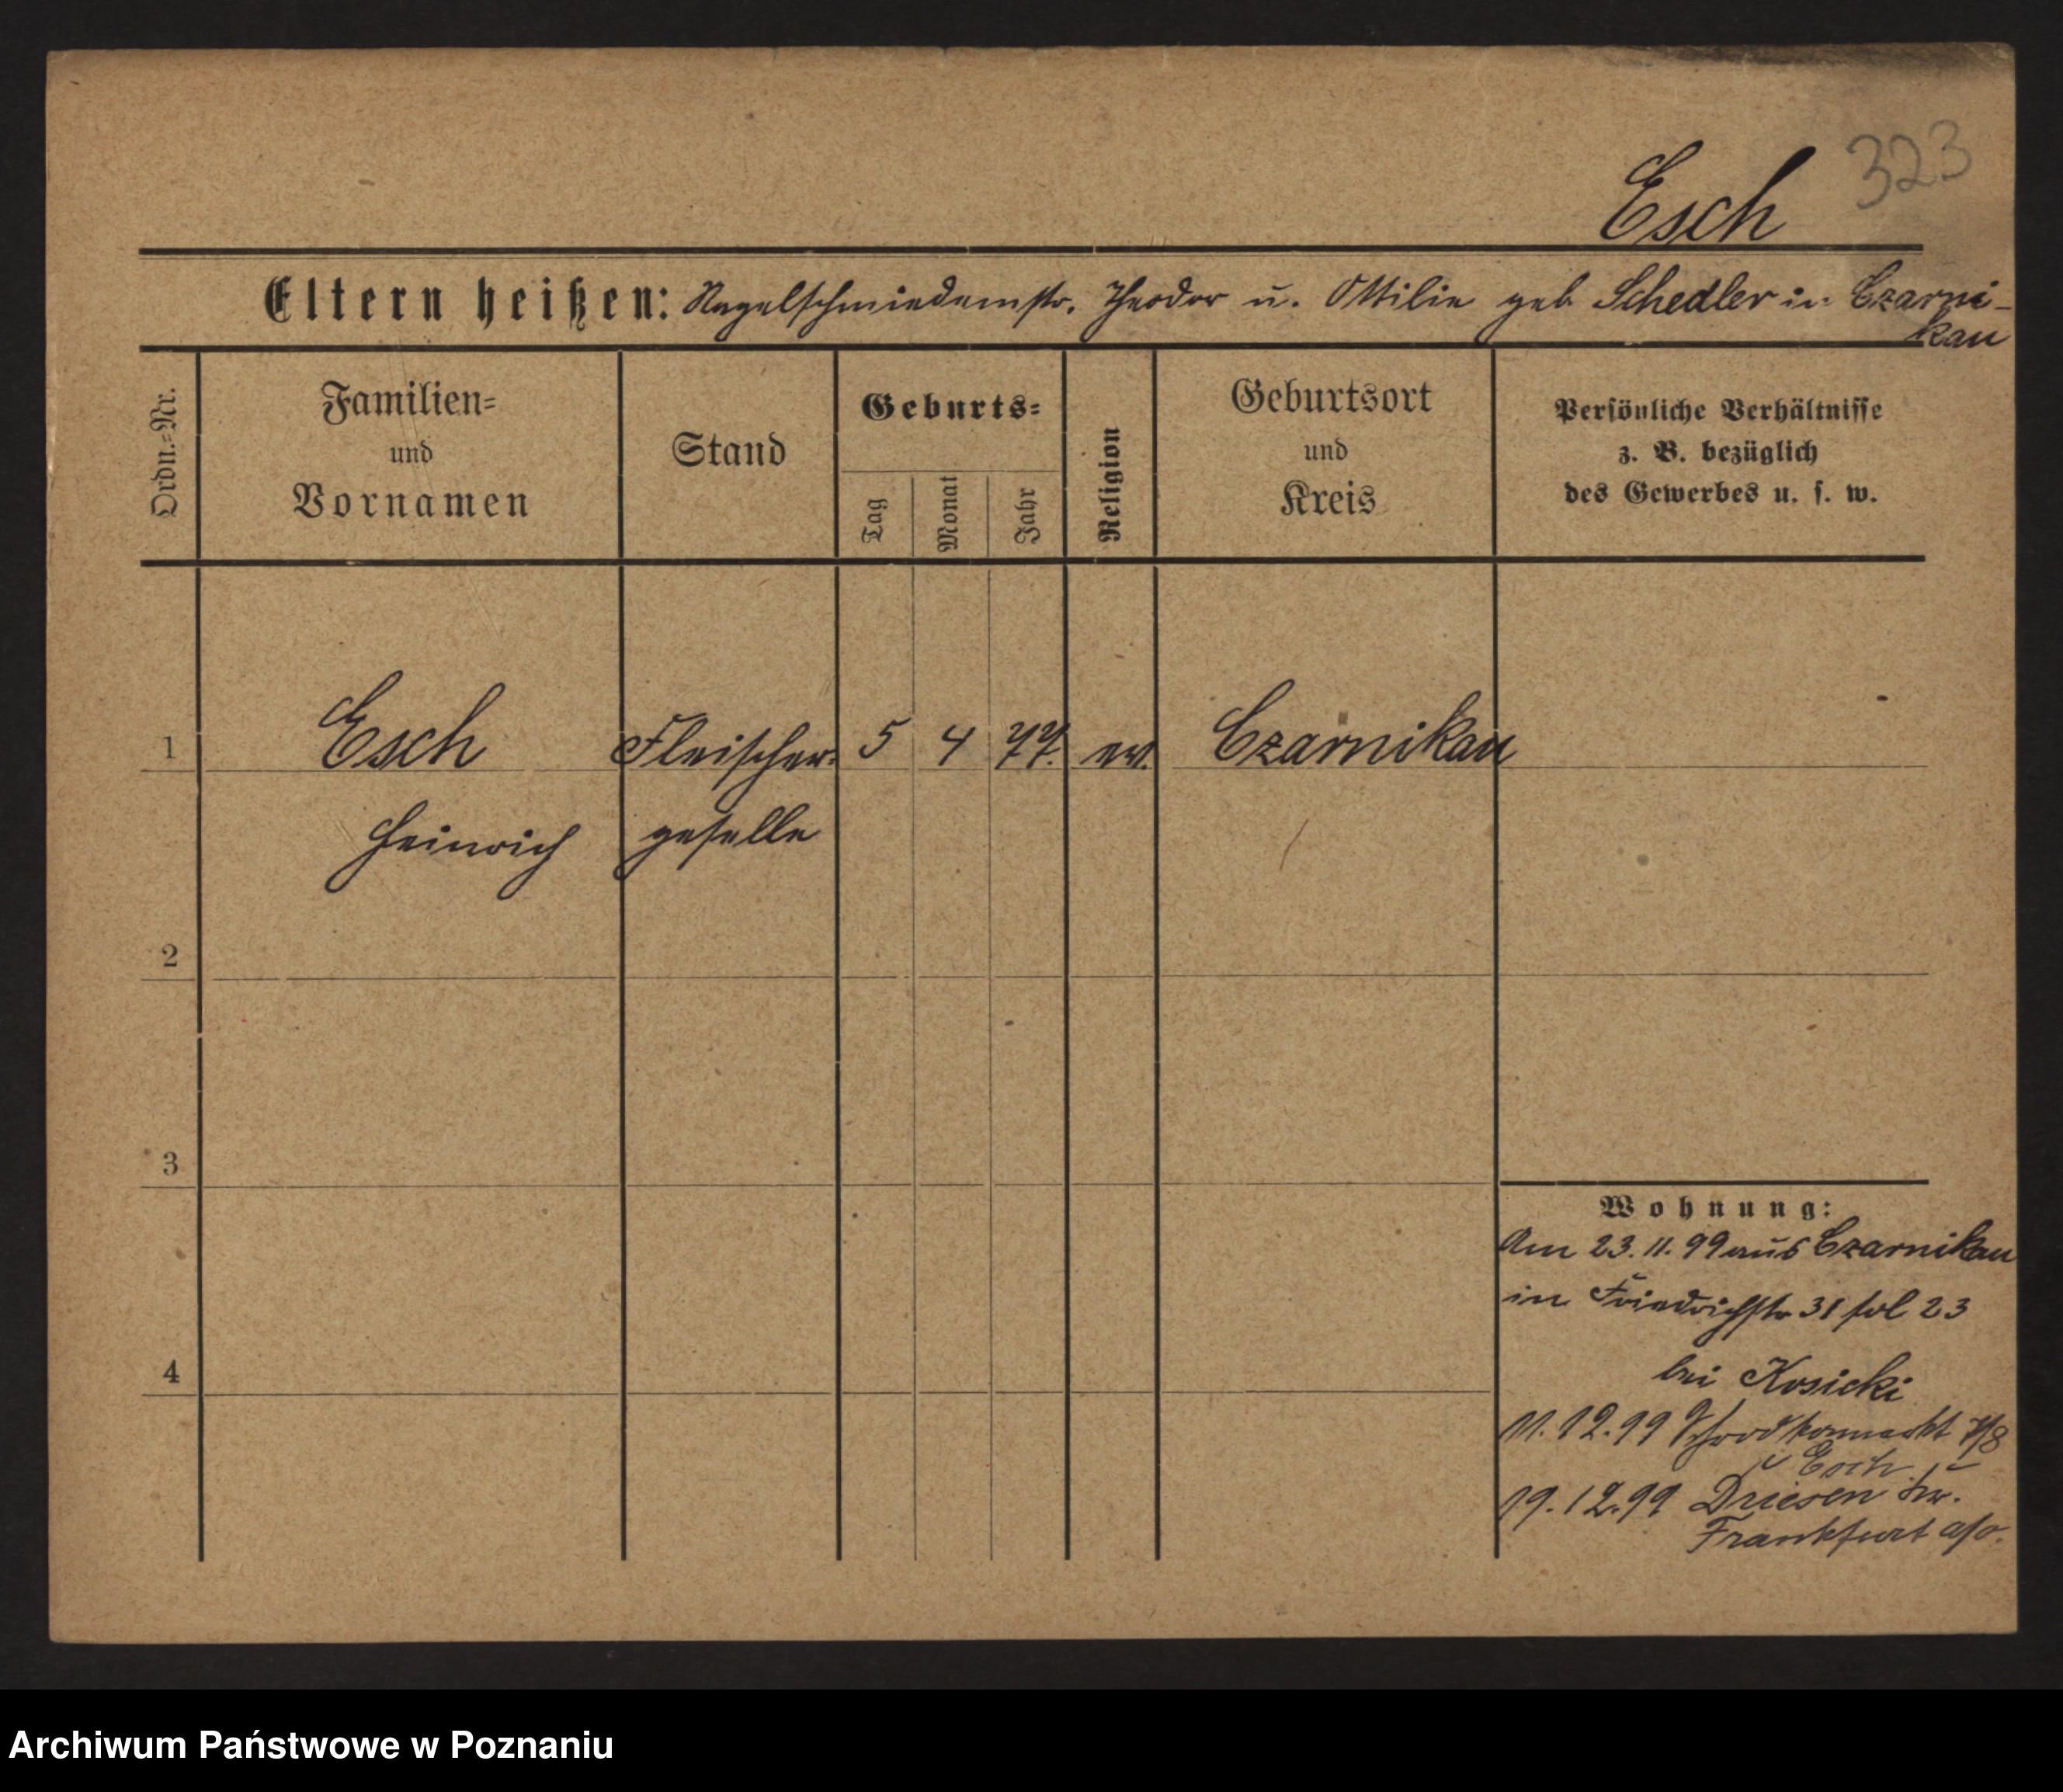 323
Esch
Eltern heißen: Nagelschmiedemstr. Theodor u. Ottilie geb Schedler in Czarni-
kau
Ordn.-Nr.
Familien-
und
Vornamen
Stand
Geburts-
Tag
Monat
Jahr
Religion
Geburtsort
und
Kreis
Persönliche Verhältnisse
z. B. bezüglich
des Gewerbes u. s. w.
1 Esch Fleischer- 5 4 77. ev. Czarnikau
Heinrich geselle
2
3
4
Wohnung:
Am 23.11.99 aus Czarnikau
in Friedrichstr 31 fol 23
bei Kosicki
11.12.99
Esch
19.12.99 Driesen Kr.
Frankfurt a/o.
Archiwum Państwowe w Poznaniu